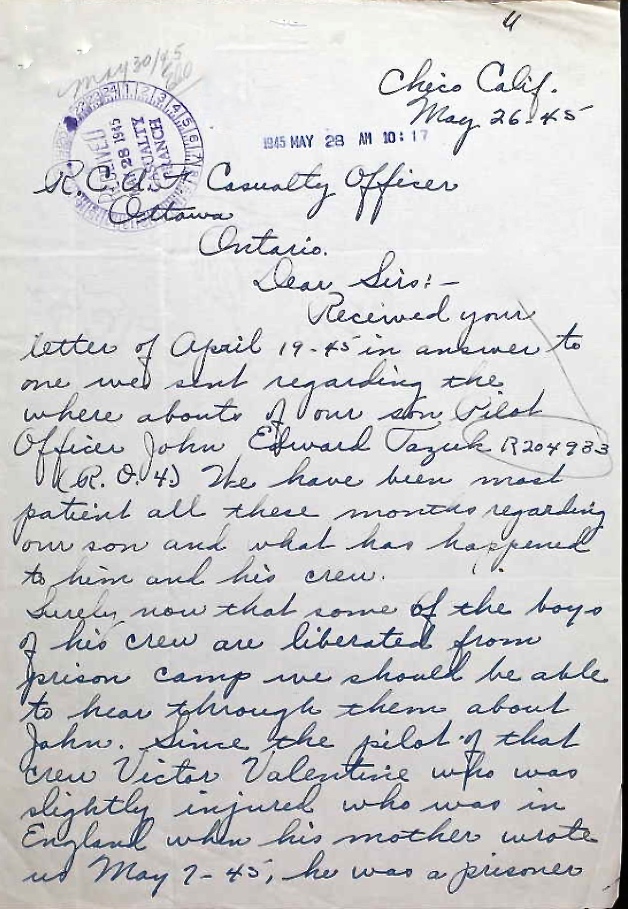 4
May 30/45
Chico Calif.
May 26-45
1945 MAY 28 AM 10:17
RECEIVED
MAY 28 1945
CASUALTY
BRANCH
R.C.A.F. Casualty Officer
Ottawa
Ontario.
Dear Sirs:-
Received your
letter of April 19-45 in answer to
one we sent regarding the
where abouts of our son Pilot
Officer John Edward Tazuk R204933
(R.O.4.) We have been most
patient all these months regarding
our son and what has happened
to him and his crew.
Surely now that some of the boys
of his crew are liberated from
prison camp we should be able
to hear through them about
John. Since the pilot of that
crew Victor Valentine who was
slightly injured who was in
England when his mother wrote
us May 7-45, he was a prisoner